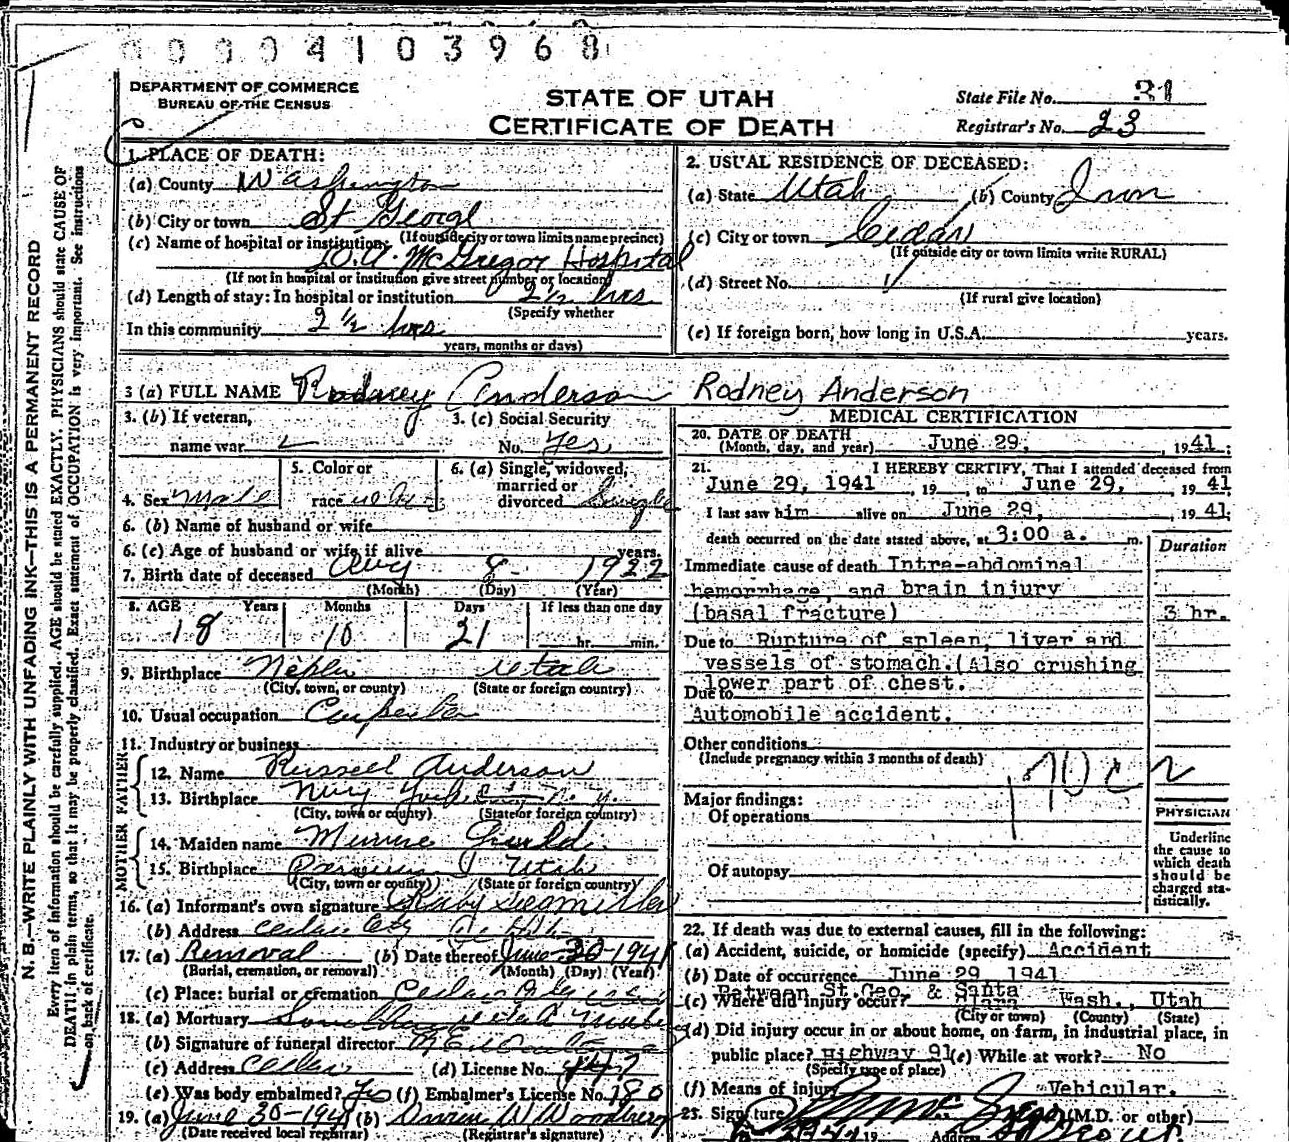 0004103968
DEPARTMENT OF COMMERCE
BUREAU OF THE CENSUS
STATE OF UTAH
CERTIFICATE OF DEATH
State File No. 31
Registrar's No. 23
N. B.—WRITE PLAINLY WITH UNFADING INK—THIS IS A PERMANENT RECORD
Every item of information should be carefully supplied. AGE should be stated EXACTLY. PHYSICIANS should state CAUSE OF
DEATH in plain terms, so that it may be properly classified. Exact statement of OCCUPATION is very important. See instructions
on back of certificate.
1. PLACE OF DEATH:
(a) County Washington
(b) City or town St George
(If outside city or town limits name precinct)
(c) Name of hospital or institution:
D.A. McGregor Hospital
(If not in hospital or institution give street number or location)
(d) Length of stay: In hospital or institution 2½ hrs
(Specify whether
In this community 2½ hrs
years, months or days)
2. USUAL RESIDENCE OF DECEASED:
(a) State Utah (b) County Iron
(c) City or town Cedar
(If outside city or town limits write RURAL)
(d) Street No.
(If rural give location)
(e) If foreign born, how long in U.S.A. years.
3 (a) FULL NAME Rodney Anderson Rodney Anderson
3. (b) If veteran,
name war
3. (c) Social Security
No. yes
4. Sex Male
5. Color or
race
6. (a) Single, widowed,
married or
divorced Single
6. (b) Name of husband or wife
6. (c) Age of husband or wife if alive years.
7. Birth date of deceased Aug 8 1922
(Month) (Day) (Year)
8. AGE Years Months Days If less than one day
18 10 21 hr. min.
9. Birthplace Nephi Utah
(City, town, or county) (State or foreign country)
10. Usual occupation Carpenter
11. Industry or business
FATHER
12. Name Russell Anderson
13. Birthplace
(City, town or county) (State or foreign country)
MOTHER
14. Maiden name
15. Birthplace Utah
(City, town or county) (State or foreign country)
16. (a) Informant's own signature
(b) Address Cedar City Utah
17. (a) Removal (b) Date thereof June-30-1941
(Burial, cremation, or removal) (Month) (Day) (Year)
(c) Place: burial or cremation Cedar
18. (a) Mortuary
(b) Signature of funeral director
(c) Address Cedar (d) License No. 447
(e) Was body embalmed? Yes (f) Embalmer's License No. 180
19. (a) June 30-1941 (b)
(Date received local registrar) (Registrar's signature)
MEDICAL CERTIFICATION
20. DATE OF DEATH
(Month, day, and year) June 29, 1941;
21. I HEREBY CERTIFY, That I attended deceased from
June 29, 1941, 19 to June 29, 1941
I last saw him alive on June 29, 1941;
death occurred on the date stated above, at 3:00 a. m.
Duration
Immediate cause of death Intra-abdominal
hemorrhage, and brain injury
(basal fracture) 3 hr.
Due to Rupture of spleen, liver and
vessels of stomach.(Also crushing
lower part of chest.
Due to
Automobile accident.
Other conditions
(Include pregnancy within 3 months of death)
Major findings:
Of operations
Of autopsy
PHYSICIAN
Underline
the cause to
which death
should be
charged sta-
tistically.
22. If death was due to external causes, fill in the following:
(a) Accident, suicide, or homicide (specify) Accident
(b) Date of occurrence June 29, 1941
Between St. Geo. & Santa
(c) Where did injury occur? Clara Wash., Utah
(City or town) (County) (State)
(d) Did injury occur in or about home, on farm, in industrial place, in
public place? Highway 91 (e) While at work? No
(Specify type of place)
(f) Means of injury Vehicular.
23. Signature (M.D. or other)
Address